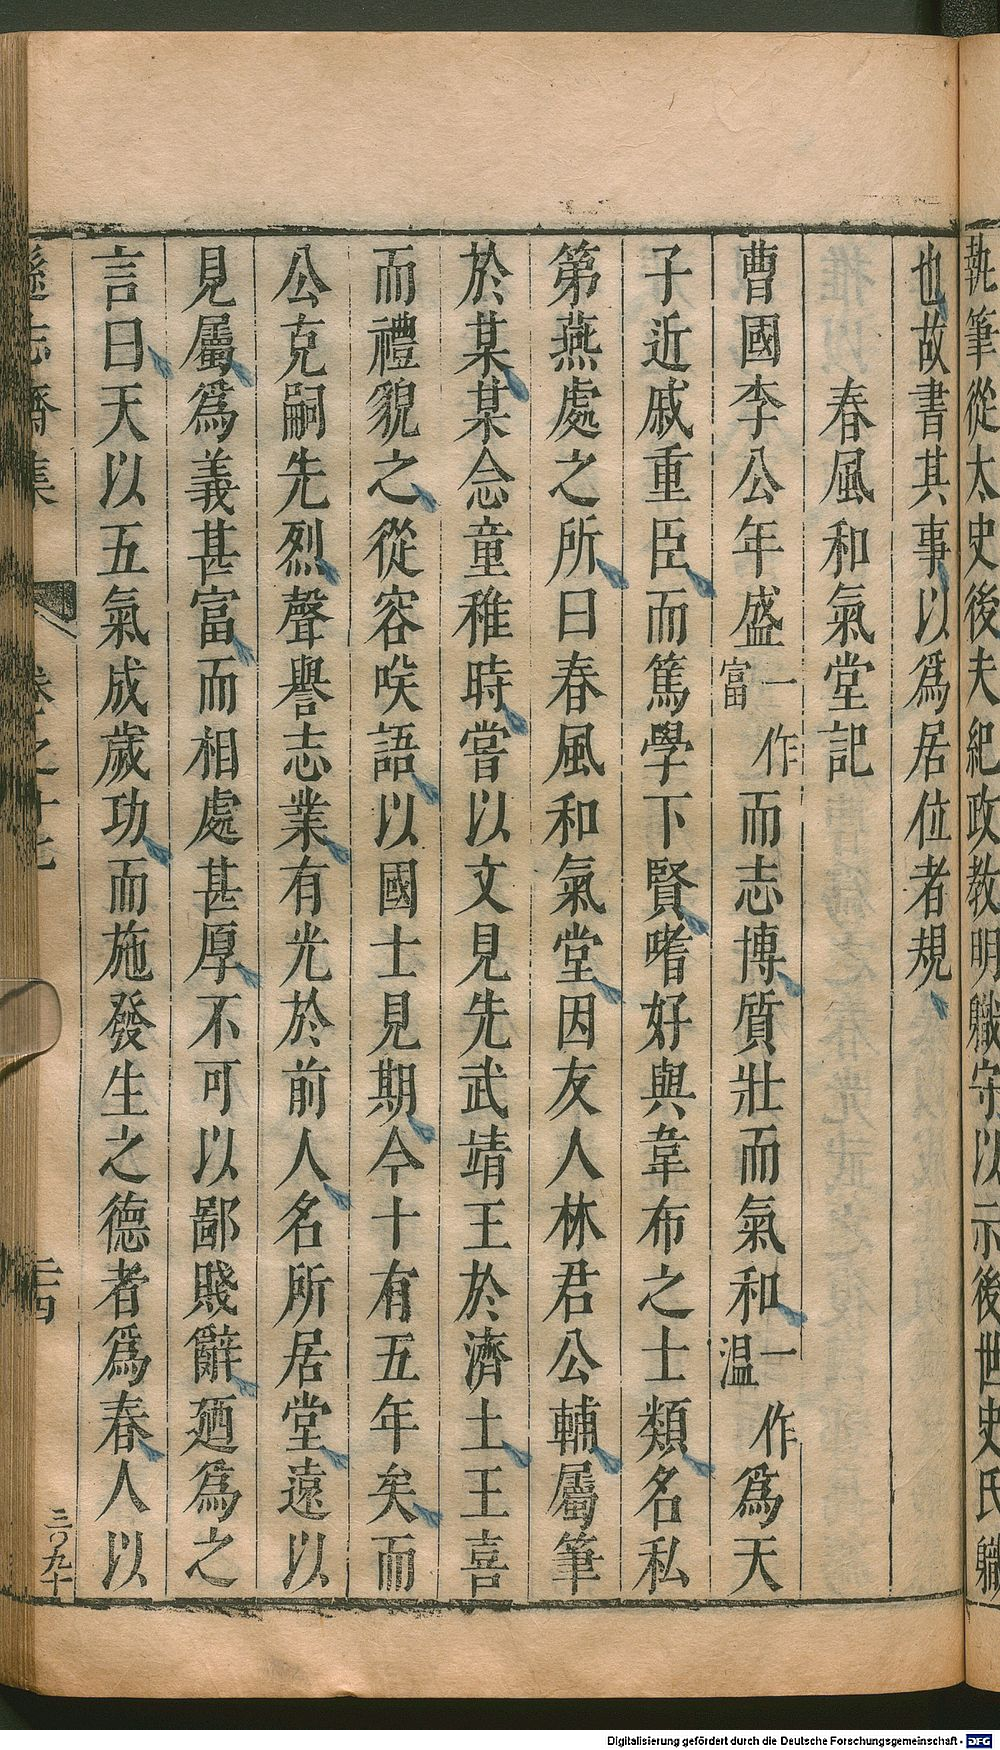 執筆從太史後夫紀政教明職守以示後世史氏職
也故書其事以爲居位者規
春風和氣堂記
曹國李公年盛一作富而志博質壯而氣和一作温爲天
子近戚重臣而篤學下賢嗜好與韋布之士類名私
第燕處之所曰春風和氣堂因友人林君公輔屬筆
於某某念童稚時嘗以文見先武靖王於濟土王喜
而禮貌之從容唉語以國士見期今十有五年矣而
公克嗣先烈聲譽志業有光於前人名所居堂遠以
見屬爲義甚富而相處甚厚不可以鄙賤辭廼爲之
言曰天以五氣成歲功而施發生之德者爲春人以
遜志齋集 卷之十七 二四
三〇九十
Digitalisierung gefördert durch die Deutsche Forschungsgemeinschaft - DFG